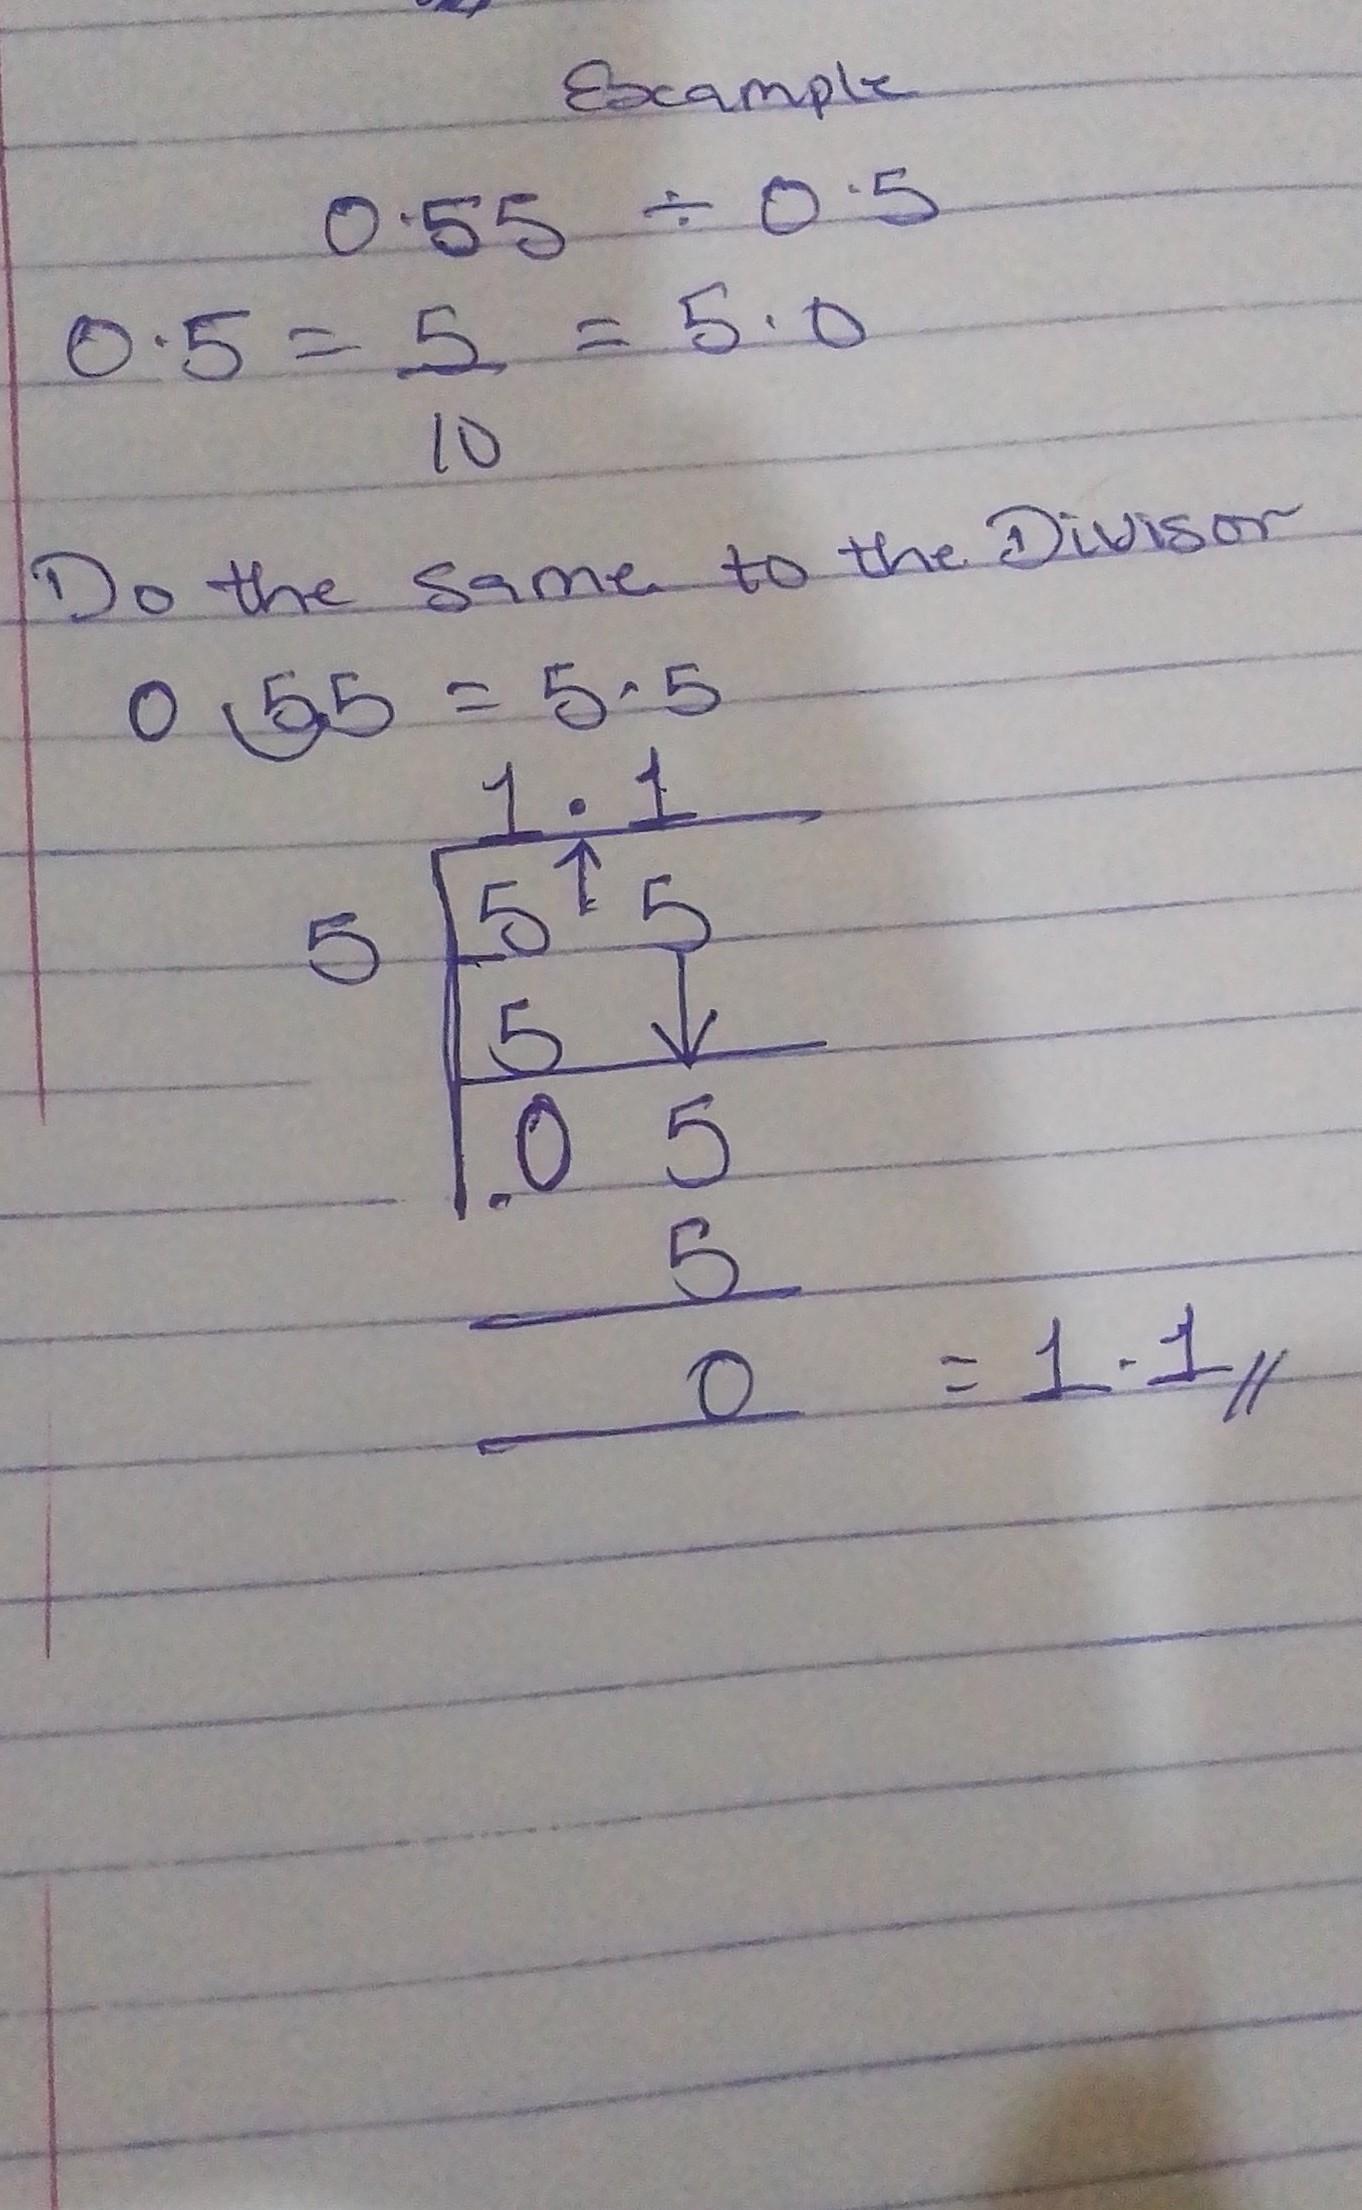 Example
0.55 ÷ 0.5
0.5 = 5/10 = 5.0
Do the same to the Divisor
0.55 = 5.5
1.1
5 5 5
5
.0 5
5
0 = 1.1 //